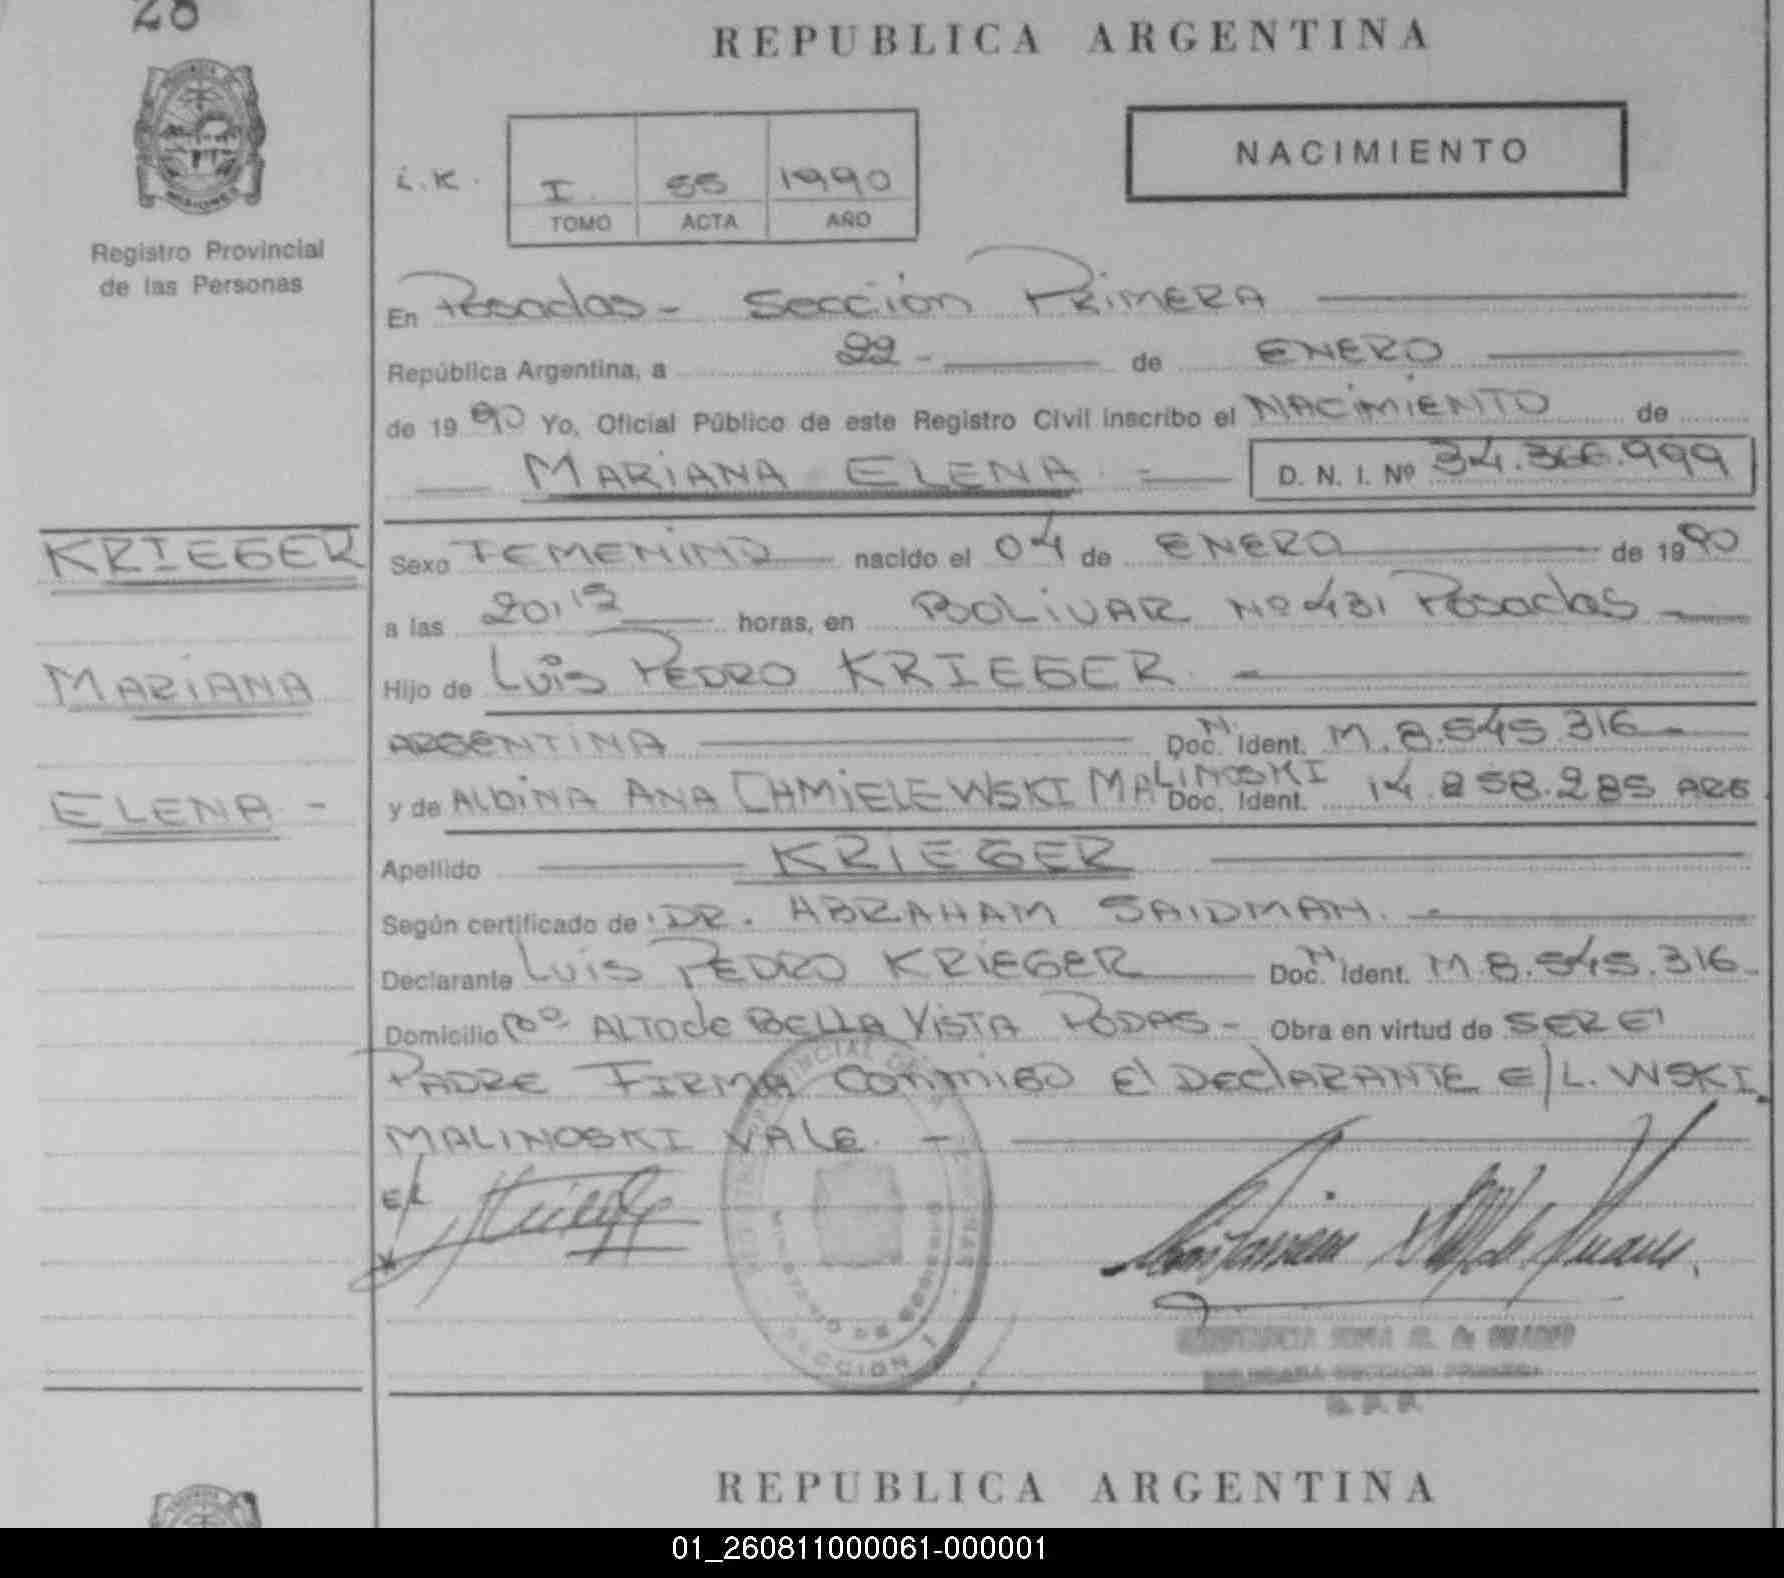 28
REPUBLICA ARGENTINA
NACIMIENTO
L.K. I. 55 1990
TOMO ACTA AÑO
Registro Provincial
de las Personas
En Posadas - Sección PRIMERA
República Argentina, a 22 - de ENERO
de 1990 Yo, Oficial Público de este Registro Civil inscribo el NACIMIENTO de
MARIANA ELENA - D. N. I. Nº 34.366.999
KRIEGER
MARIANA
ELENA -
Sexo FEMENINO nacido el 04 de ENERO de 1990
a las 20,15 horas, en BOLIVAR Nº 431 Posadas
Hijo de Luis PEDRO KRIEGER. -
ARGENTINA Doc. N. Ident. M. 8.545.316 -
y de AlbiNA ANA CHMIELEWSKI MALINOSKI Doc. Ident. 14.858.285 ARG
Apellido KRIEGER
Según certificado de DR. ABRAHAM SAIDMAN. -
Declarante Luis PEDRO KRIEGER Doc. N Ident. M.8.545.316 -
Domicilio Bº ALTO de BELLA VISTA PODAS - Obra en virtud de SER El
PADRE FIRMA CONMIGO El DEClARANTE E/L. WSKI
MALINOSKI VALE. -
E/L
MINISTERIO DE GOBIERNO
SECCION 1
REPUBLICA ARGENTINA
01_260811000061-000001